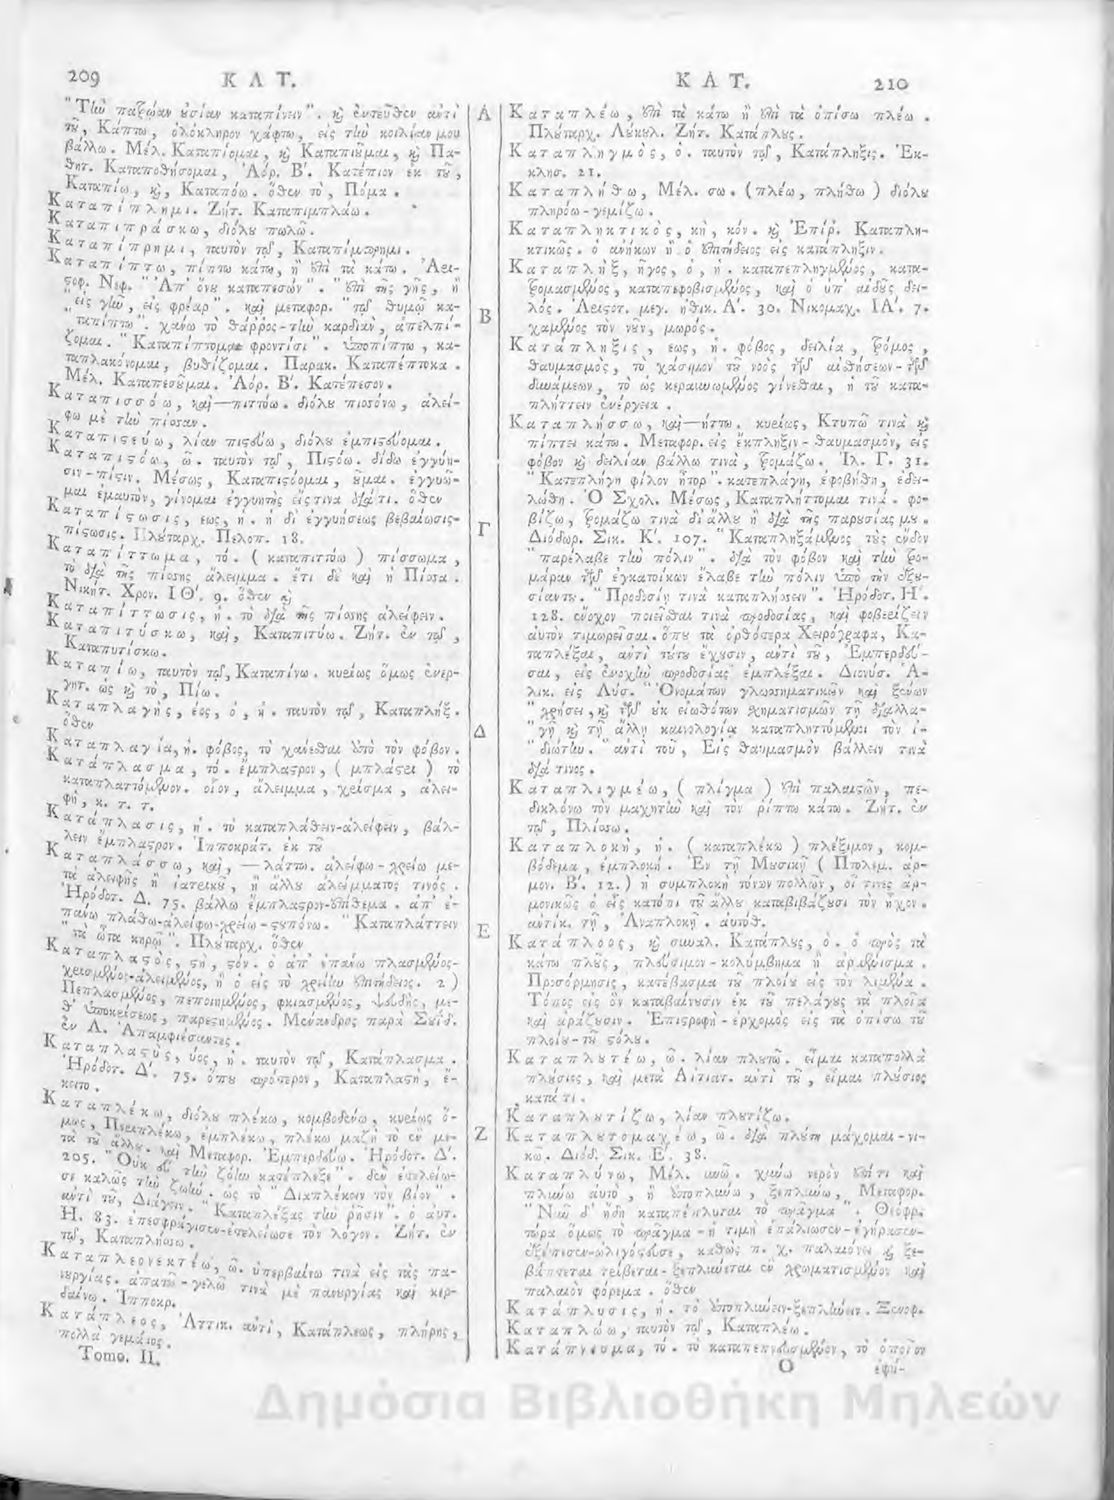 209 ΚΑΤ.
"Τὴν πατρῴαν οὐσίαν καταπίνειν". καὶ ἐντεῦθεν ἀντὶ
τοῦ, Κάπτω, ὁλόκληρον χάφτω, εἰς τὴν κοιλίαν μου
βάλλω. Μέλ. Καταπίομαι, καὶ Καταπιοῦμαι, καὶ Πα-
θητ. Καταποθήσομαι, Ἀόρ. Β'. Κατέπιον ἐκ τοῦ,
Καταπίω, καὶ, Καταπόω. ὅθεν τὸ, Πόμα.
Καταπίπλημι. Ζήτ. Καταπιμπλάω.
Καταπιπράσκω, διόλου πωλῶ.
Καταπίπρημι, ταυτὸν τῷ, Καταπίμπρημι.
Καταπίπτω, πίπτω κάτω, ἢ ἐπὶ τὰ κάτω. Ἀρι-
στοφ. Νεφ. "Ἀπ' ὄνου καταπεσών". "ἐπὶ τῆς γῆς, ἢ
"εἰς γῆν, εἰς φρέαρ". καὶ μεταφορ. "τῷ θυμῷ κα-
"ταπίπτω". χάνω τὸ θάρρος-τὴν καρδίαν, ἀπελπί-
ζομαι. "Καταπίπτομαι φροντίσι". ὑποπίπτω, κα-
ταπλακόνομαι, βυθίζομαι. Παρακ. Καταπέπτωκα.
Μέλ. Καταπεσοῦμαι. Ἀόρ. Β'. Κατέπεσον.
Καταπισσόω, καὶ—πιττόω. διόλου πισσόνω, ἀλεί-
φω μὲ τὴν πίσσαν.
Καταπιστεύω, λίαν πιστεύω, διόλου ἐμπιστεύομαι.
Καταπιστόω, ῶ. ταυτὸν τῷ, Πιστόω. δίδω ἐγγύη-
σιν-πίστιν. Μέσως, Καταπιστόομαι, οῦμαι. ἐγγυῶ-
μαι ἐμαυτὸν, γίνομαι ἐγγυητὴς εἴς τινα διά τι. ὅθεν
Καταπίστωσις, εως, ἡ. ἡ δι' ἐγγυήσεως βεβαίωσις-
πίστωσις. Πλούταρχ. Πελοπ. 18.
Καταπίττωμα, τό. (καταπιττόω) πίσσωμα,
τὸ διὰ τῆς πίσσης ἄλειμμα. ἔτι δὲ καὶ ἡ Πίσσα.
Νικήτ. Χρον. ΙΘ'. 9. ὅθεν καὶ
Καταπίττωσις, ἡ. τὸ διὰ τῆς πίσσης ἀλείφειν.
Καταπιτύσκω, καὶ, Καταπιτύω. Ζήτ. ἐν τῷ,
Καταπυτίσκω.
Καταπίω, ταυτὸν τῷ, Καταπίνω. κυρίως ὅμως ἐνερ-
γητ. ὡς καὶ τὸ, Πίω.
Καταπλαγής, έος, ὁ, ἡ. ταυτὸν τῷ, Καταπλήξ.
ὅθεν
Καταπλαγία, ἡ. φόβος, τὸ χάνεσθαι ὑπὸ τὸν φόβον.
Κατάπλασμα, τό. ἔμπλαστρον, (μπλάστρι) τὸ
καταπλαττόμενον. οἷον, ἄλειμμα, χρίσμα, ἀλει-
φὴ, κ. τ. τ.
Κατάπλασις, ἡ. τὸ καταπλάθειν-ἀλείφειν, βάλ-
λειν ἔμπλαστρον. Ἱπποκράτ. ἐκ τοῦ
Καταπλάσσω, καὶ, —λάττω. ἀλείφω-χρίω με-
τὰ ἀλειφῆς ἢ ἰατρικοῦ, ἢ ἄλλου ἀλείμματος τινός.
Ἡρόδοτ. Δ. 75. βάλλω ἔμπλαστρον-ἐπίθεμα. ἀπ' ἐ-
πάνω πλάθω-ἀλείφω-χρίω-στυπόνω. "Καταπλάττειν
"τὰ ὦτα κηρῷ". Πλούταρχ. ὅθεν
Καταπλαστός, στή, στόν. ὁ ἀπ' ἐπάνω πλασμένος-
χρισμένος-ἀλειμμένος, ἢ ὁ εἰς τὸ χρίειν ἐπιτήδειος. 2)
Πεπλασμένος, πεποιημένος, φκιασμένος, ψευδής, με-
θ' ὑποκρίσεως, παρεστημένος. Μένανδρος παρὰ Σουΐδ.
ἐν Λ. Ἀπαμφιέσαντες.
Καταπλαστύς, ύος, ἡ. ταυτὸν τῷ, Κατάπλασμα.
Ἡρόδοτ. Δ'. 75. ὅπου πρότερον, Καταπλαστὴ, ἔ-
κειτο.
Καταπλέκω, διόλου πλέκω, κομβοδένω, κυρίως ὅ-
μως, Περιπλέκω, ἐμπλέκω, πλέκω μαζῆ τὸ ἓν με-
τὰ τοῦ ἄλλου. καὶ Μεταφορ. Ἐμπερδεύω. Ἡρόδοτ. Δ'.
205. "Οὐκ εὖ τὴν ζόην κατέπλεξε". δὲν ἐτελείω-
σε καλῶς τὴν ζωήν. ὡς τὸ "Διαπλέκειν τὸν βίον".
ἀντὶ τοῦ, Διάγειν. "Καταπλέξας τὴν ῥῆσιν". ὁ αὐτ.
Η. 83. ἐπεσφράγισεν-ἐτελείωσε τὸν λόγον. Ζήτ. ἐν
τῷ, Καταπλήσσω.
Καταπλεονεκτέω, ῶ. ὑπερβαίνω τινὰ εἰς τὰς πα-
νουργίας. ἀπατῶ-γελῶ τινὰ μὲ πανουργίας καὶ κερ-
δαίνω. Ἱπποκρ.
Κατάπλεος, Ἀττικ. ἀντὶ, Κατάπλεως, πλήρης,
πολλὰ γεμάτος.
Tomo. II.
Α
Β
Γ
Δ
Ε
Ζ
ΚΑΤ. 210
Καταπλέω, ἐπὶ τὰ κάτω ἢ ἐπὶ τὰ ὀπίσω πλέω.
Πλούταρχ. Λύκουλ. Ζήτ. Κατάπλους.
Καταπληγμός, ὁ. ταυτὸν τῷ, Κατάπληξις. Ἐκ-
κλησ. 21.
Καταπλήθω, Μέλ. σω. (πλέω, πλήθω) διόλου
πληρόω-γεμίζω.
Καταπληκτικός, κή, κόν. καὶ Ἐπίρ. Καταπλη-
κτικῶς. ὁ ἀνήκων ἢ ὁ ἐπιτήδειος εἰς κατάπληξιν.
Καταπλήξ, ῆγος, ὁ, ἡ. καταπεπληγμένος, κατα-
τρομασμένος, καταπεφοβισμένος, καὶ ὁ ὑπ' αἰδοῦς δει-
λός. Ἀριστοτ. μεγ. ἠθικ. Α'. 30. Νικομαχ. ΙΑ'. 7.
χαμένος τὸν νοῦν, μωρός.
Κατάπληξις, εως, ἡ. φόβος, δειλία, τρόμος,
θαυμασμός, τὸ χάσημον τοῦ νοὸς τῶν αἰσθήσεων-τῶν
δυνάμεων, τὸ ὡς κεραυνωμένος γίνεσθαι, ἡ τοῦ κατα-
πλήττειν ἐνέργεια.
Καταπλήσσω, καὶ—ήττω. κυρίως, Κτυπῶ τινὰ καὶ
πίπτει κάτω. Μεταφορ. εἰς ἔκπληξιν-θαυμασμὸν, εἰς
φόβον καὶ δειλίαν βάλλω τινὰ, τρομάζω. Ἰλ. Γ. 31.
"Κατεπλήγη φίλον ἦτορ". κατεπλάγη, ἐφοβήθη, ἐδει-
λώθη. Ὁ Σχολ. Μέσως, Καταπλήττομαι τινά. φο-
βίζω, τρομάζω τινὰ δι' ἄλλου ἢ διὰ τῆς παρουσίας μου.
Διόδωρ. Σικ. Κ'. 107. "Καταπληξάμενος τοὺς ἔνδον
"παρέλαβε τὴν πόλιν". διὰ τὸν φόβον καὶ τὴν τρο-
μάραν τῶν ἐγκατοίκων ἔλαβε τὴν πόλιν ὑπὸ τὴν ἐξου-
σίαν του. "Προδοσίῃ τινὰ καταπλήσσειν". Ἡρόδοτ. Η'.
128. ἔνοχον ποιεῖσθαι τινὰ προδοσίας, καὶ φοβερίζειν
αὐτὸν τιμωρεῖσαι. ὅπου τὰ ὀρθότερα Χειρόγραφα, Κα-
ταπλέξαι, ἀντὶ τούτου ἔχουσιν, ἀντὶ τοῦ, Ἐμπερδεῦ-
σαι, εἰς ἐνοχὴν προδοσίας ἐμπλέξαι. Διονύσ. Ἁ-
λικ. εἰς Λύσ. "Ὀνομάτων γλωσσηματικῶν καὶ ξένων
"χρήσει, καὶ τῶν οὐκ εἰωθότων σχηματισμῶν τῇ διαλλα-
"γῇ καὶ τῇ ἄλλῃ καινολογίᾳ καταπληττόμενοι τὸν ἰ-
"διώτην. "ἀντὶ τοῦ, Εἰς θαυμασμὸν βάλλειν τινὰ
διά τινος.
Καταπλιγμέω, (πλίγμα) ἐπὶ παλαιστῶν, πε-
δικλόνω τὸν μαχητὴν καὶ τὸν ῥίπτω κάτω. Ζήτ. ἐν
τῷ, Πλίσσω.
Καταπλοκὴ, ἡ. (καταπλέκω) πλέξιμον, κομ-
βόδεμα, ἐμπλοκή. Ἐν τῇ Μουσικῇ (Πτολεμ. ἁρ-
μον. Β'. 12.) ἡ συμπλοκὴ τόνων πολλῶν, οἵ τινες ἁρ-
μονικῶς ὁ εἷς κατόπι τοῦ ἄλλου καταβιβάζουσι τὸν ἦχον.
ἀντίκ. τῇ, Ἀναπλοκῇ. αὐτόθ.
Κατάπλοος, καὶ συναλ. Κατάπλους, ὁ. ὁ πρὸς τὰ
κάτω πλοῦς, πλεύσιμον-κολύμβημα ἢ ἀράξισμα.
Προσόρμησις, κατέβασμα τοῦ πλοίου εἰς τὸν λιμένα.
Τόπος εἰς ὃν καταβαίνουσιν ἐκ τοῦ πελάγους τὰ πλοῖα
καὶ ἀράζουσιν. Ἐπιστροφὴ-ἐρχομὸς εἰς τὰ ὀπίσω τοῦ
πλοίου-τοῦ στόλου.
Καταπλουτέω, ῶ. λίαν πλουτῶ. εἶμαι καταπολλὰ
πλούσιος, καὶ μετὰ Αἰτιατ. ἀντὶ τοῦ, εἶμαι πλούσιος
κατά τι.
Καταπλουτίζω, λίαν πλουτίζω.
Καταπλουτομαχέω, ῶ. διὰ πλούτου μάχομαι-νι-
κῶ. Διόδ. Σικ. Ε'. 38.
Καταπλύνω, Μέλ. υνῶ. χύνω νερὸν ἐπί τι καὶ
πλύνω αὐτὸ, ἢ ὑποπλύνω, ξεπλύνω, Μεταφορ.
"Νῦν δ' ἤδη καταπέπλυται τὸ πρᾶγμα". Θεόφρ.
τώρα ὅμως τὸ πρᾶγμα-ἡ τιμὴ ἐπάλιωσεν-ἐγήρασεν-
ἐξέπεσεν-ὠλιγόστευσε, καθὼς π. χ. παλαιόνει καὶ ξε-
βάπτεται τρίβεται-ξεπλύνεται ἓν χρωματισμένον καὶ
παλαιὸν φόρεμα. ὅθεν
Κατάπλυσις, ἡ. τὸ ὑποπλύνειν-ξεπλύνειν. Ξενοφ.
Καταπλώω, ταυτὸν τῷ, Καταπλέω.
Κατάπνευμα, τό. τὸ καταπεπνευσμένον, τὸ ὁποῖον
Ο ἐφυ-
Δημόσια Βιβλιοθήκη Μηλεών